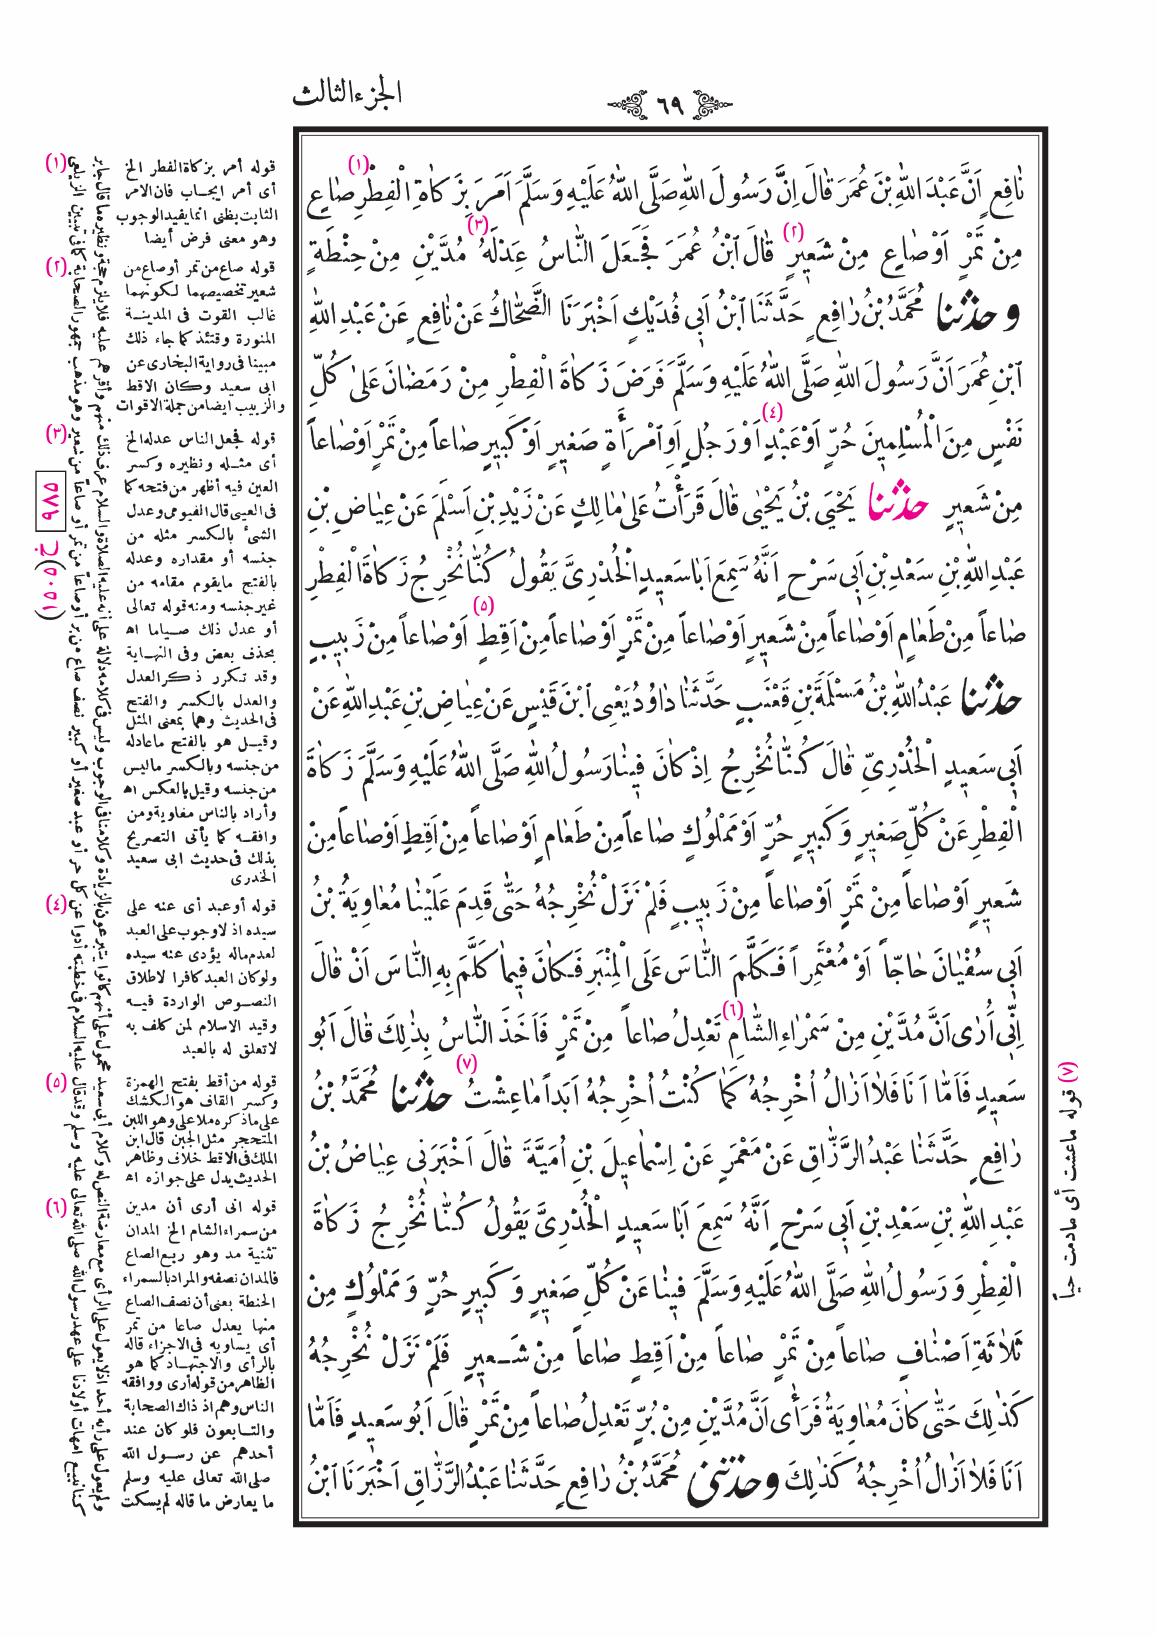 الجزء الثالث
٦٩
نَافِعٍ اَنَّ عَبْدَ اللّٰهِ بْنَ عُمَرَ قَالَ اِنَّ رَسُولَ اللّٰهِ صَلَّى اللّٰهُ عَلَيْهِ وَسَلَّمَ اَمَرَ بِزَكَاةِ الْفِطْرِ (١) صَاعٍ
مِنْ تَمْرٍ اَوْ صَاعٍ مِنْ شَعِيرٍ (٢) قَالَ ابْنُ عُمَرَ فَجَعَلَ النَّاسُ عِدْلَهُ (٣) مُدَّيْنِ مِنْ حِنْطَةٍ
وحدثنا مُحَمَّدُ بْنُ رَافِعٍ حَدَّثَنَا ابْنُ اَبِى فُدَيْكٍ اَخْبَرَنَا الضَّحَّاكُ عَنْ نَافِعٍ عَنْ عَبْدِ اللّٰهِ
ابْنِ عُمَرَ اَنَّ رَسُولَ اللّٰهِ صَلَّى اللّٰهُ عَلَيْهِ وَسَلَّمَ فَرَضَ زَكَاةَ الْفِطْرِ مِنْ رَمَضَانَ عَلٰى كُلِّ
نَفْسٍ مِنَ الْمُسْلِمِينَ حُرٍّ اَوْ عَبْدٍ (٤) اَوْ رَجُلٍ اَوِ امْرَأَةٍ صَغِيرٍ اَوْ كَبِيرٍ صَاعاً مِنْ تَمْرٍ اَوْ صَاعاً
مِنْ شَعِيرٍ حدثنا يَحْيَى بْنُ يَحْيٰى قَالَ قَرَأْتُ عَلٰى مَالِكٍ عَنْ زَيْدِ بْنِ اَسْلَمَ عَنْ عِيَاضِ بْنِ
عَبْدِ اللّٰهِ بْنِ سَعْدِ بْنِ اَبِى سَرْحٍ اَنَّهُ سَمِعَ اَبَا سَعِيدٍ الْخُدْرِىَّ يَقُولُ كُنَّا نُخْرِجُ زَكَاةَ الْفِطْرِ
صَاعاً مِنْ طَعَامٍ اَوْ صَاعاً مِنْ شَعِيرٍ اَوْ صَاعاً مِنْ تَمْرٍ اَوْ صَاعاً مِنْ اَقِطٍ (٥) اَوْ صَاعاً مِنْ زَبِيبٍ
حدثنا عَبْدُ اللّٰهِ بْنُ مَسْلَمَةَ بْنِ قَعْنَبٍ حَدَّثَنَا دَاوُدُ يَعْنِى ابْنَ قَيْسٍ عَنْ عِيَاضِ بْنِ عَبْدِ اللّٰهِ عَنْ
اَبِى سَعِيدٍ الْخُدْرِىِّ قَالَ كُنَّا نُخْرِجُ اِذْ كَانَ فِينَا رَسُولُ اللّٰهِ صَلَّى اللّٰهُ عَلَيْهِ وَسَلَّمَ زَكَاةَ
الْفِطْرِ عَنْ كُلِّ صَغِيرٍ وَكَبِيرٍ حُرٍّ اَوْ مَمْلُوكٍ صَاعاً مِنْ طَعَامٍ اَوْ صَاعاً مِنْ اَقِطٍ اَوْ صَاعاً مِنْ
شَعِيرٍ اَوْ صَاعاً مِنْ تَمْرٍ اَوْ صَاعاً مِنْ زَبِيبٍ فَلَمْ نَزَلْ نُخْرِجُهُ حَتّٰى قَدِمَ عَلَيْنَا مُعَاوِيَةُ بْنُ
اَبِى سُفْيَانَ حَاجّاً اَوْ مُعْتَمِراً فَكَلَّمَ النَّاسَ عَلَى الْمِنْبَرِ فَكَانَ فِيمَا كَلَّمَ بِهِ النَّاسَ اَنْ قَالَ
اِنِّى اُرٰى اَنَّ مُدَّيْنِ مِنْ سَمْرَاءِ الشَّامِ (٦) تَعْدِلُ صَاعاً مِنْ تَمْرٍ فَاَخَذَ النَّاسُ بِذٰلِكَ قَالَ اَبُو
سَعِيدٍ فَاَمَّا اَنَا فَلَا اَزَالُ اُخْرِجُهُ كَمَا كُنْتُ اُخْرِجُهُ اَبَداً مَا عِشْتُ (٧) حدثنا مُحَمَّدُ بْنُ
رَافِعٍ حَدَّثَنَا عَبْدُ الرَّزَّاقِ عَنْ مَعْمَرٍ عَنْ اِسْمَاعِيلَ بْنِ اُمَيَّةَ قَالَ اَخْبَرَنِى عِيَاضُ بْنُ
عَبْدِ اللّٰهِ بْنِ سَعْدِ بْنِ اَبِى سَرْحٍ اَنَّهُ سَمِعَ اَبَا سَعِيدٍ الْخُدْرِىَّ يَقُولُ كُنَّا نُخْرِجُ زَكَاةَ
الْفِطْرِ وَرَسُولُ اللّٰهِ صَلَّى اللّٰهُ عَلَيْهِ وَسَلَّمَ فِينَا عَنْ كُلِّ صَغِيرٍ وَكَبِيرٍ حُرٍّ وَمَمْلُوكٍ مِنْ
ثَلَاثَةِ اَصْنَافٍ صَاعاً مِنْ تَمْرٍ صَاعاً مِنْ اَقِطٍ صَاعاً مِنْ شَعِيرٍ فَلَمْ نَزَلْ نُخْرِجُهُ
كَذٰلِكَ حَتّٰى كَانَ مُعَاوِيَةُ فَرَأٰى اَنَّ مُدَّيْنِ مِنْ بُرٍّ تَعْدِلُ صَاعاً مِنْ تَمْرٍ قَالَ اَبُو سَعِيدٍ فَاَمَّا
اَنَا فَلَا اَزَالُ اُخْرِجُهُ كَذٰلِكَ وحدثنى مُحَمَّدُ بْنُ رَافِعٍ حَدَّثَنَا عَبْدُ الرَّزَّاقِ اَخْبَرَنَا ابْنُ
(٧) قوله ماعشت أى مادمت حياً
(١) قوله أمر بزكاة الفطر الخ
أى أمر ايجاب فان الامر
الثابت بظنى انما يفيد الوجوب
وهو معنى فرض أيضا
(٢) قوله صاع من تمر أو صاع من
شعير تخصيصهما لكونهما
غالب القوت فى المدينة
المنورة وقتئذ كما جاء ذلك
مبينا فى رواية البخارى عن
ابى سعيد وكان الاقط
والزبيب ايضا من جملة الاقوات
(٣) قوله فجعل الناس عدله الخ
أى مثله ونظيره وكسر
العين فيه أظهر من فتحه كما
فى العينى قال الفيومى وعدل
الشئ بالكسر مثله من
جنسه أو مقداره وعدله
بالفتح مايقوم مقامه من
غير جنسه ومنه قوله تعالى
أو عدل ذلك صياما اه
بحذف بعض وفى النهاية
وقد تكرر ذكر العدل
والعدل بالكسر والفتح
فى الحديث وهما بمعنى المثل
وقيل هو بالفتح ماعادله
من جنسه وبالكسر ماليس
من جنسه وقيل بالعكس اه
وأراد بالناس معاوية ومن
وافقه كما يأتى التصريح
بذلك فى حديث ابى سعيد
الخدرى
(٤) قوله أوعبد أى عنه على
سيده اذ لا وجوب على العبد
لعدم ماله يؤدى عنه سيده
ولوكان العبد كافرا لاطلاق
النصوص الواردة فيه
وقيد الاسلام لمن كلف به
لا تعلق له بالعبد
(٥) قوله من أقط بفتح الهمزة
وكسر القاف هو الكشك
على ماذكره ملا على وهو اللبن
المتحجر مثل الجبن قال ابن
الملك فى الاقط خلاف وظاهر
الحديث يدل على جوازه اه
(٦) قوله انى أرى أن مدين
من سمراء الشام الخ المدان
تثنية مد وهو ربع الصاع
فالمدان نصفه والمراد بالسمراء
الحنطة بمعنى أن نصف الصاع
منها يعدل صاعا من تمر
أى يساويه فى الاجزاء قاله
بالرأى والاجتهاد كما هو
الظاهر من قوله أرى ووافقه
الناس وهم اذ ذاك الصحابة
والتابعون فلو كان عند
أحدهم عن رسول الله
صلى الله تعالى عليه وسلم
ما يعارض ما قاله لم يسكت
٥٧٦
ج (٥٠٥١)